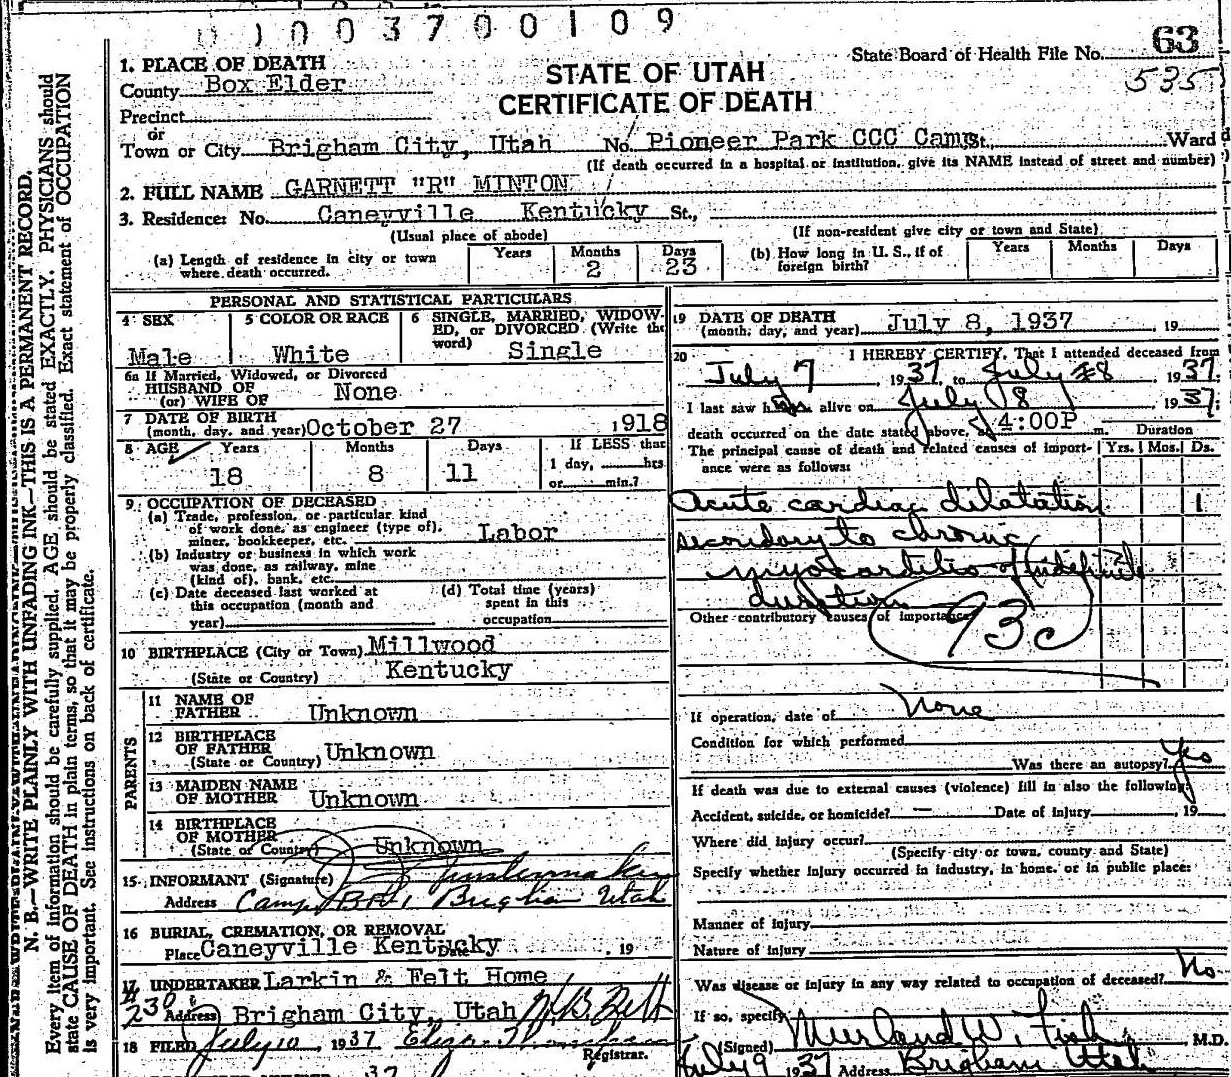 0 1 0 0 3 7 0 0 1 0 9
State Board of Health File No. 63
535
STATE OF UTAH
CERTIFICATE OF DEATH
1. PLACE OF DEATH
County Box Elder
Precinct
or
Town or City Brigham City, Utah No. Pioneer Park CCC Camp St., Ward
(If death occurred in a hospital or institution, give its NAME instead of street and number)
2. FULL NAME GARNETT "R" MINTON
3. Residence: No. Caneyville Kentucky St.,
(Usual place of abode) (If non-resident give city or town and State)
(a) Length of residence in city or town where death occurred. Years Months 2 Days 23 (b) How long in U. S., if of foreign birth? Years Months Days
PERSONAL AND STATISTICAL PARTICULARS
4 SEX 5 COLOR OR RACE 6 SINGLE, MARRIED, WIDOWED, or DIVORCED (Write the word)
Male White Single
6a If Married, Widowed, or Divorced
HUSBAND OF
(or) WIFE OF None
7 DATE OF BIRTH
(month, day, and year) October 27 1918
8 AGE Years Months Days If LESS that
18 8 11 1 day, hrs
or min.?
9 OCCUPATION OF DECEASED
(a) Trade, profession, or particular kind
of work done, as engineer (type of),
miner, bookkeeper, etc. Labor
(b) Industry or business in which work
was done, as railway, mine
(kind of), bank, etc.
(c) Date deceased last worked at
this occupation (month and
year)
(d) Total time (years)
spent in this
occupation
10 BIRTHPLACE (City or Town) Millwood
(State or Country) Kentucky
PARENTS
11 NAME OF
FATHER Unknown
12 BIRTHPLACE
OF FATHER
(State or Country) Unknown
13 MAIDEN NAME
OF MOTHER Unknown
14 BIRTHPLACE
OF MOTHER
(State or Country) Unknown
15 INFORMANT (Signature)
Address Camp Brigham Utah
16 BURIAL, CREMATION, OR REMOVAL
Place Caneyville Kentucky Date , 19
17 UNDERTAKER Larkin & Felt Home
# 230
Address) Brigham City, Utah
18 FILED July 10, 1937
Registrar.
37
19 DATE OF DEATH
(month, day, and year) July 8, 1937 , 19
20 I HEREBY CERTIFY, That I attended deceased from
July 7 1937 to July 8, 1937.
I last saw him alive on July 8 1937.
death occurred on the date stated above, at 4:00P m. Duration
The principal cause of death and related causes of importance were as follows: Yrs. Mos. Ds.
Acute cardiac dilatation 1
secondary to chronic
myocarditis of indefinite
duration
Other contributory causes of importance
93c
If operation, date of None
Condition for which performed
Was there an autopsy? Yes
If death was due to external causes (violence) fill in also the following:
Accident, suicide, or homicide? — Date of injury , 19
Where did injury occur?
(Specify city or town, county and State)
Specify whether injury occurred in industry, in home, or in public place:
Manner of injury
Nature of injury
Was disease or injury in any way related to occupation of deceased? No
If so, specify
(Signed) W. Fish M.D.
July 9 1937 Address Brigham Utah
N. B.—WRITE PLAINLY WITH UNFADING INK—THIS IS A PERMANENT RECORD.
Every item of information should be carefully supplied. AGE should be stated EXACTLY. PHYSICIANS should
state CAUSE OF DEATH in plain terms, so that it may be properly classified. Exact statement of OCCUPATION
is very important. See instructions on back of certificate.